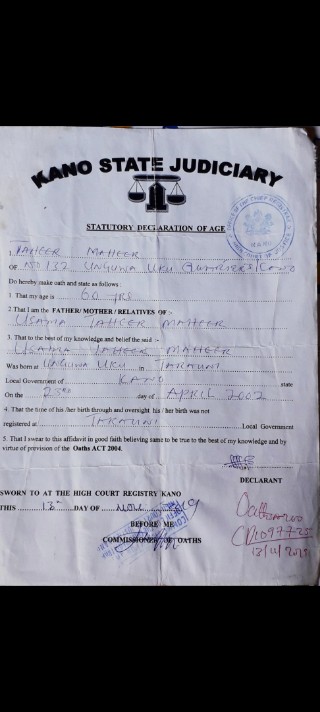 KANO STATE JUDICIARY
STATUTORY DECLARATION OF AGE
1. TAHEER MAHEER
OF NO 132 UNGUWA UKU QUARTERS KANO
Do hereby make oath and state as follows :
1 That my age is 60 YRS
2.That I am the FATHER/ MOTHER / RELATIVES OF :-
USAMA TAHEER MAHEER
3. That to the best of my knowledge and belief the said :-
USAMA TAHEER MAHEER
Was born at UNGUWA UKU in TARAUNI
Local Government of KANO state
On the 23RD day of APRIL 2002
4. That the time of his /her birth through and oversight his /her birth was not
registered at TARAUNI Local Government
5. That I swear to this affidavit in good faith believing same to be true to the best of my knowledge and by
virtue of provision of the Oaths ACT 2004.
DECLARANT
SWORN TO AT THE HIGH COURT REGISTRY KANO
THIS 13th DAY OF NOV
BEFORE ME
COMMISSIONER OF OATHS